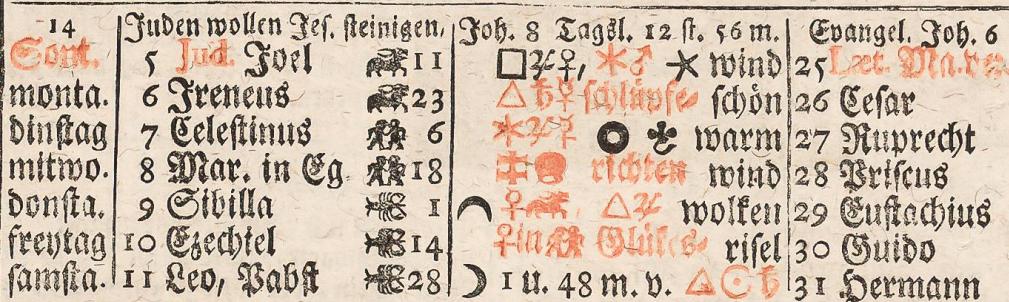 14 Juden wollen Jes. steinigen, Joh. 8 Tagsl. 12 st. 56 m. Evangel. Joh. 6
Sont. 5 Jud. Joel 11 □♃♀, ⚹♂ wind 25 Læt. Ma.ver.
monta. 6 Ireneus 23 △♄☿ schlüpfe- schön 26 Cesar
dinstag 7 Celestinus 6 ⚹♃☿ warm 27 Ruprecht
mitwo. 8 Mar. in Eg. 18 richten wind 28 Priscus
donsta. 9 Sibilla 1 ♀ △♃ wolken 29 Eustachius
freytag 10 Ezechiel 14 ♀in Glükes- risel 30 Guido
samsta. 11 Leo, Pabst 28 ☽ 1 u. 48 m. v. △☉♄ 31 Hermann